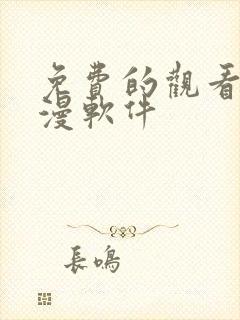 免費的觀看
漫軟件
長鳴